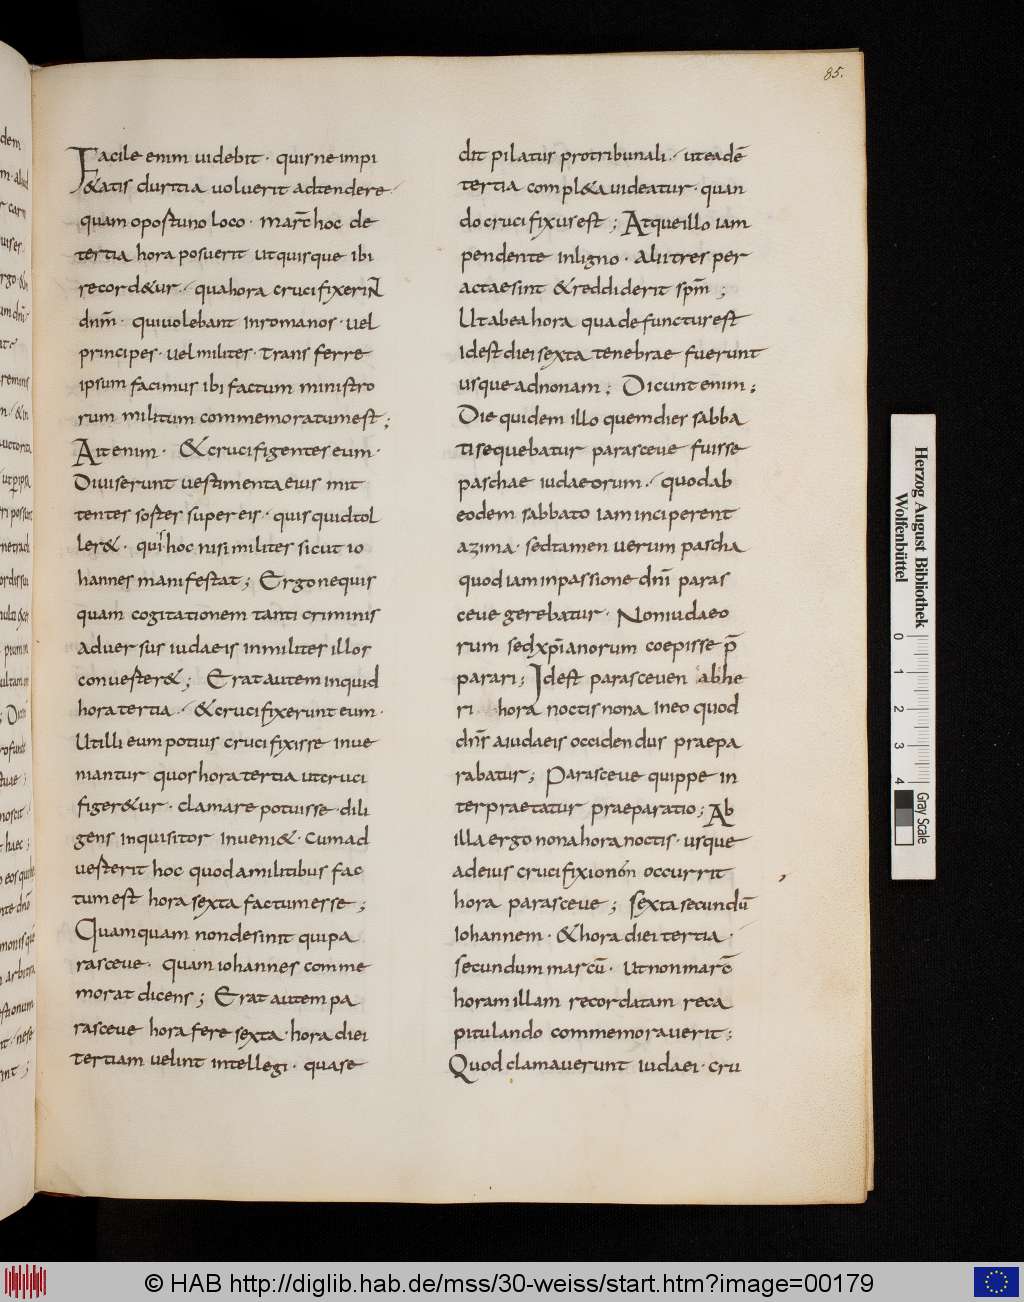 85.
Facile enim uidebit· quisne impi
&atis duritia uoluerit adtendere
quam opostuno loco· marc̄ hoc de
tertia hora posuerit utquisque ibi
record&ur· quahora crucifixerint
dnm̄· quiuolebant inromanos· uel
principes· uel milites· transferre
ipsum facimus ibi factum ministro
rum militum commemoratum est;
Ait enim· &crucifigentes eum·
Diuiserunt uestimenta eius mit
tentes sostes super eis· quis quid tol
ler&· qui hoc nisi milites sicut io
hannes manifestat; Ergo nequis
quam cogitationem tanti criminis
aduersus iudaeis inmilites illos
conuester&; Erat autem inquid
hora tertia· &crucifixerunt eum·
Ut illi eum potius crucifixisse inue
niantur quos hora tertia utcruci
figer&ur· clamare potuisse· dili
gens inquisitor inueni&· Cum ad
uesterit hoc quod amilitibus fac
tum est hora sexta factum esse;
Quamquam non desinit qui pa
rasceue· quam iohannes comme
morat dicens; Erat autem pa
rasceue hora fere sexta· hora diei
tertiam uelint intellegi· quase
dit pilatus protribunali· uteadē
tertia compl&a uideatur· quan
do crucifixus est; Atque illo iam
pendente inligno· alii tres per
actae sint &reddiderit spm̄;
Ut abea hora qua defunctur est
Idest diei sexta tenebrae fuerunt
usque adnonam; Dicunt enim;
Die quidem illo quem dies sabba
ti sequebatur parasceue fuisse
paschae iudaeorum· quod ab
eodem sabbato iam inciperent
azima· sedtamen uerum pascha
quod iam inpassione dnī paras
ceue gerebatur· Non iudaeo
rum sed xp̄ianorum coepisse p̄
parari; Idest parasceuen ab he
ri hora noctis nona ineo quod
dnīs aiudaeis occidendus praepa
rabatur; Parasceue quippe in
terpraetatur praeparatio; Ab
illa ergo nona hora noctis· usque
ad eius crucifixionón occurrit
hora parasceue; sexta secundū
Iohannem· &hora diei tertia·
secundum marcū· Ut non marc̄
horam illam recordatam reca
pitulando commemorauerit;
Quod clamauerunt iudaei· cru
Herzog August Bibliothek
Wolfenbüttel
0 1 2 3 4
Gray Scale
© HAB http://diglib.hab.de/mss/30-weiss/start.htm?image=00179